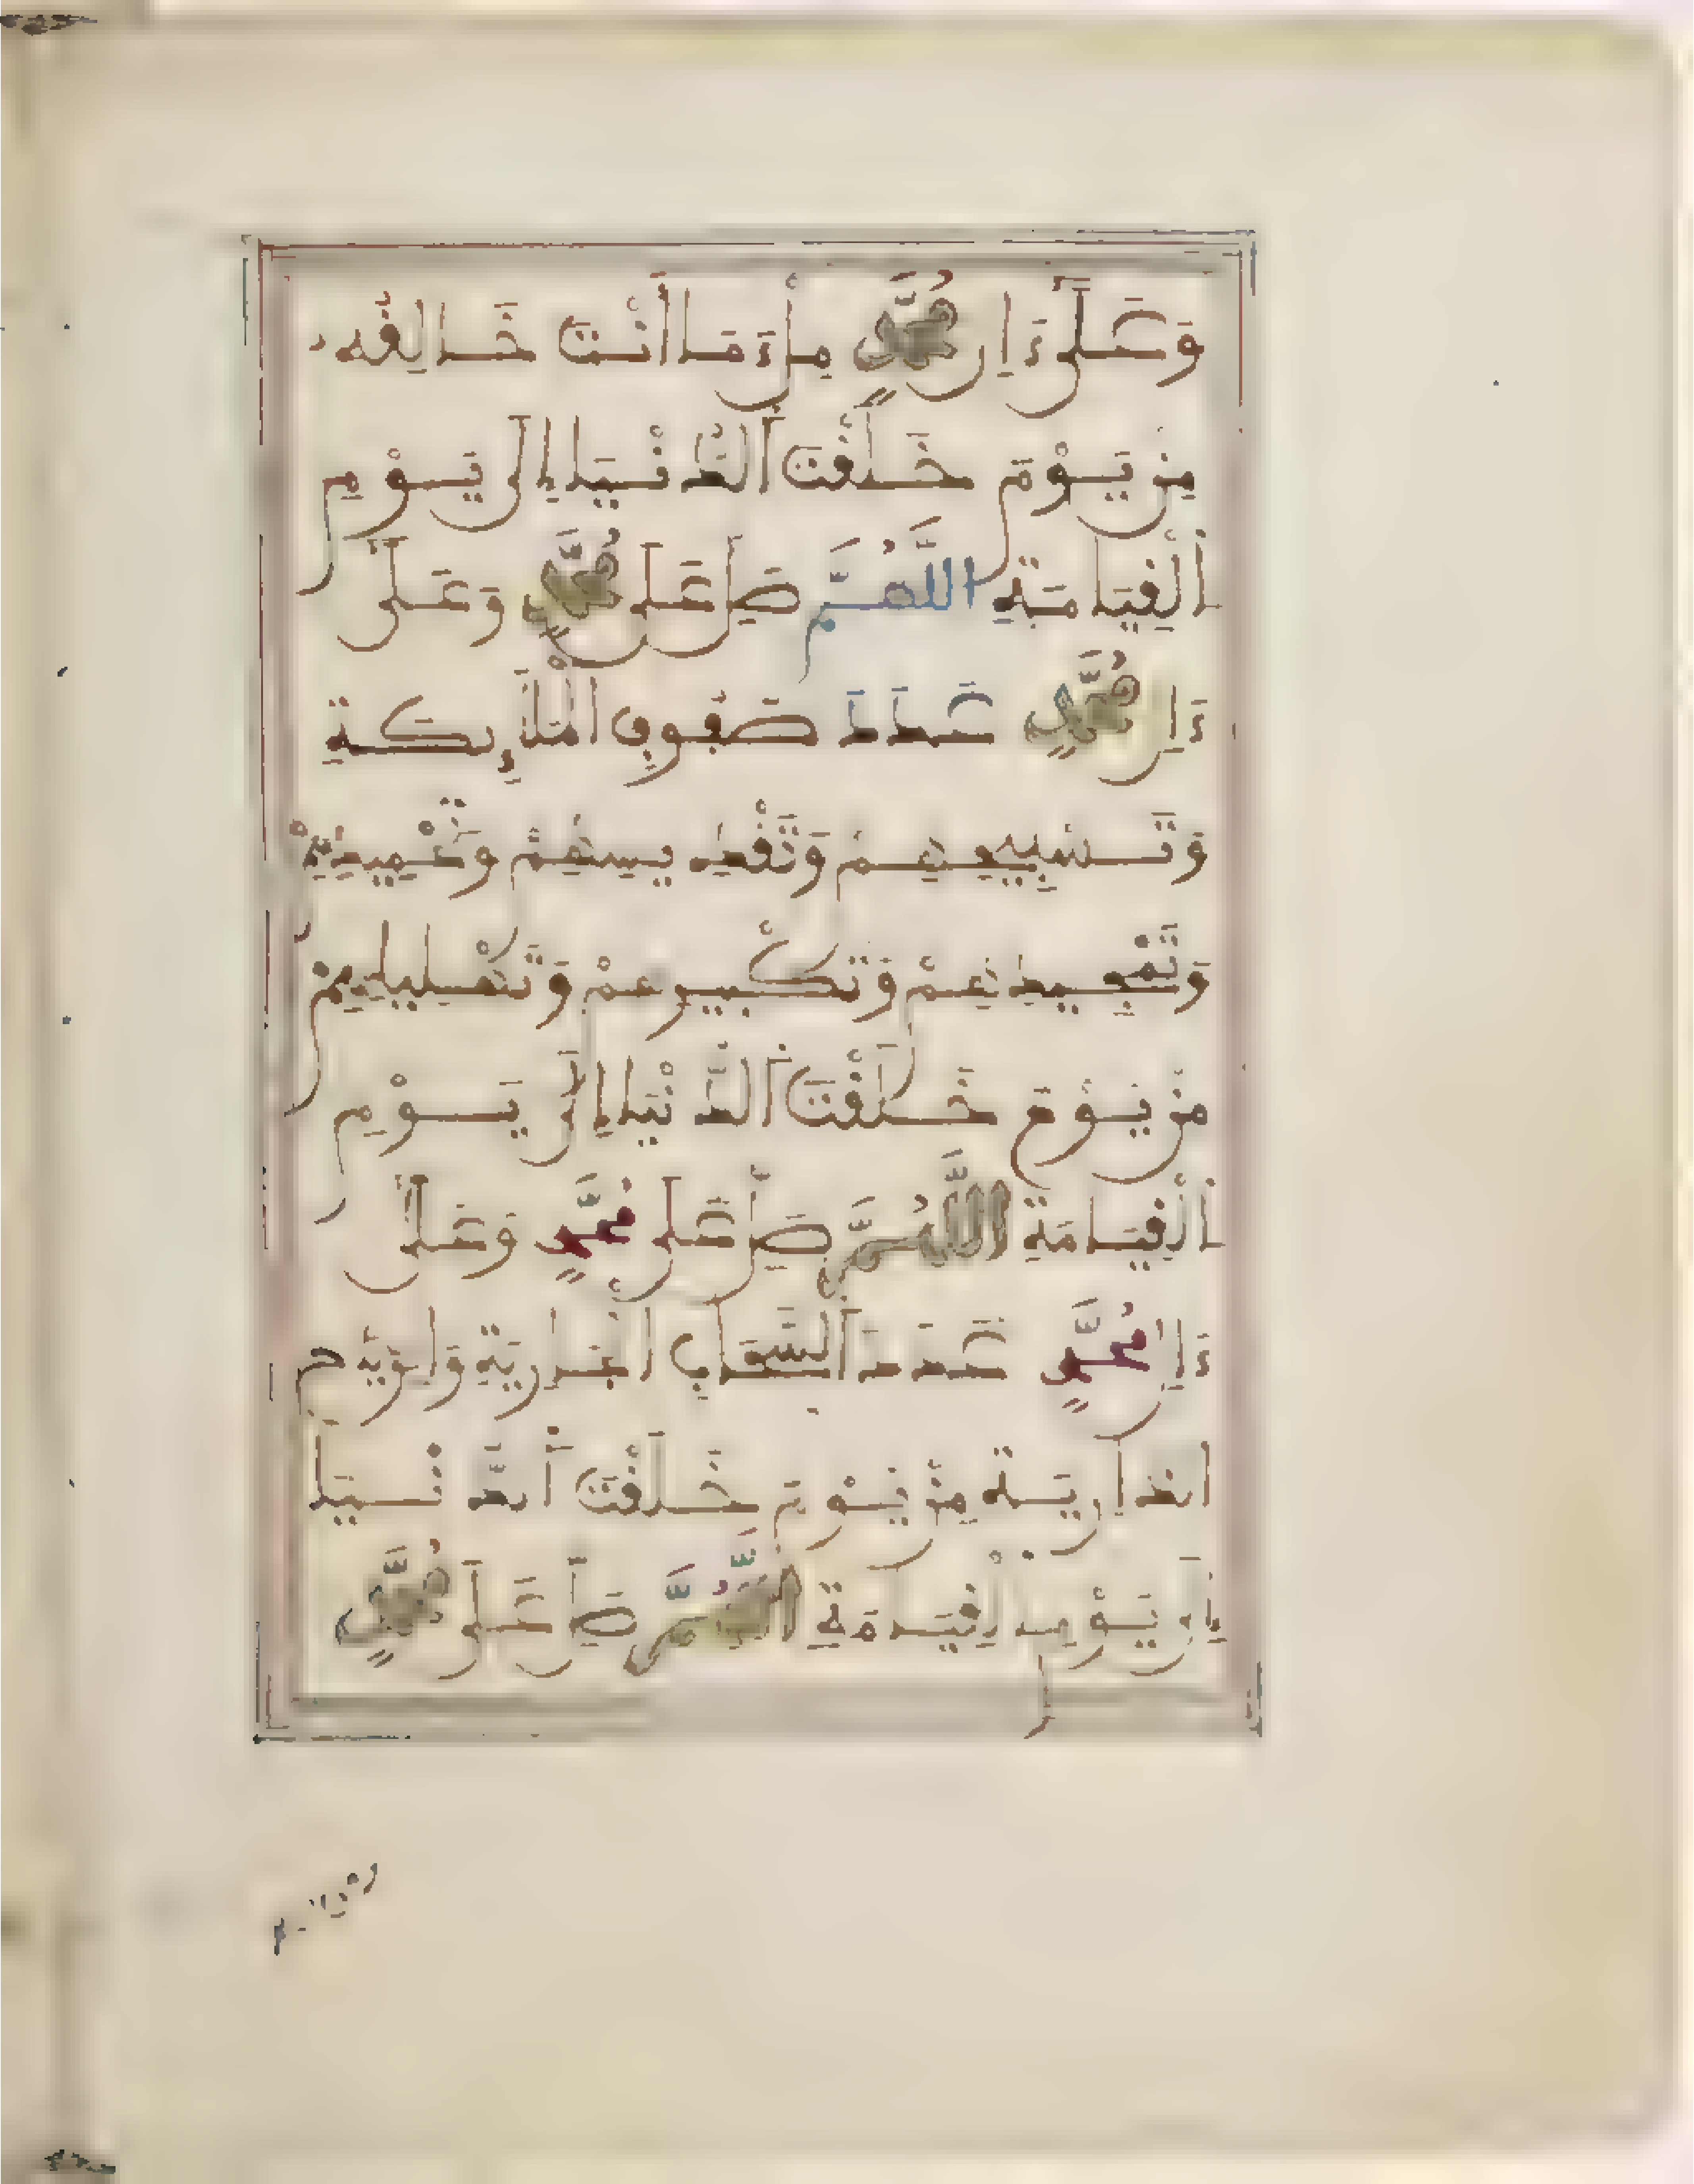 وَعَلَىٰ ءَالِ مُحَمَّدٍ مِلْءَ مَا أَنْتَ خَالِقُهُ
مِنْ يَوْمَ خَلَقْتَ الدُّنْيَا إِلَى يَوْمِ
الْقِيَامَةِ اللَّهُمَّ صَلِّ عَلَى مُحَمَّدٍ وَعَلَى
ءَالِ مُحَمَّدٍ عَدَدَ صُفُوفِ الْمَلَائِكَةِ
وَتَسْبِيحِهِمْ وَتَقْدِيسِهِمْ وَتَحْمِيدِهِمْ
وَتَمْجِيدِهِمْ وَتَكْبِيرِهِمْ وَتَهْلِيلِهِمْ
مِنْ يَوْمَ خَلَقْتَ الدُّنْيَا إِلَى يَوْمِ
الْقِيَامَةِ اللَّهُمَّ صَلِّ عَلَى مُحَمَّدٍ وَعَلَى
ءَالِ مُحَمَّدٍ عَدَدَ السَّحَابِ الْجَارِيَةِ وَالرِّيَاحِ
الذَّارِيَةِ مِنْ يَوْمَ خَلَقْتَ الدُّنْيَا
إِلَى يَوْمِ الْقِيَامَةِ اللَّهُمَّ صَلِّ عَلَى مُحَمَّدٍ